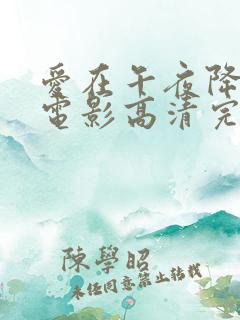 爱在午夜降
電影高清完
陳學昭
未经同意禁止转载